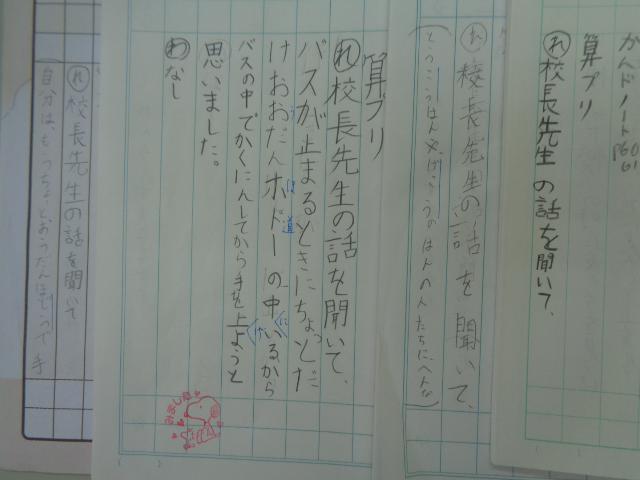 かんドノート P60 61
算プリ
㋹校長先生の話を聞いて、
㋹校長先生の話を聞いて、
算プリ
㋹校長先生の話を開いて、
バスが止まるときにちょっとだ
けおおだんホドーの中いるから
ほ道
に
バスの中でかくにんしてから手を上ようと
げ
思いました。
㋻なし
みました
㋹校長先生の話を聞いて
(自分は、もうちょとおうだんほどうで手